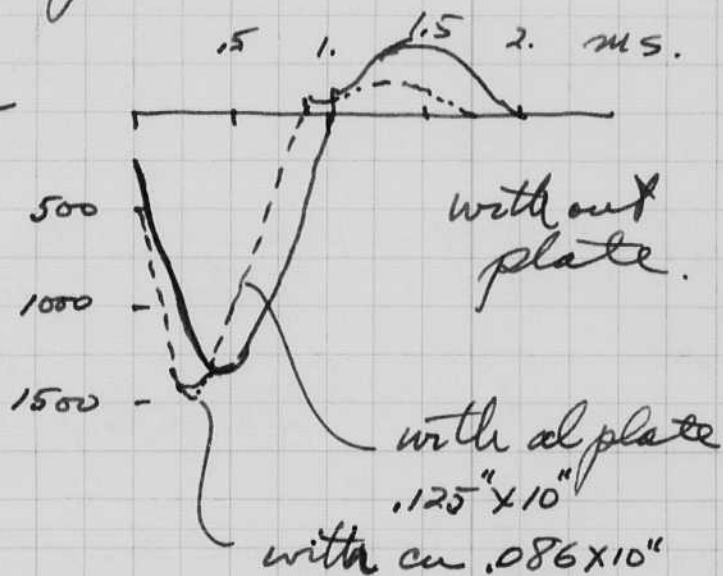 .5 1. 1.5 2. ms.
500
1000
1500
without
plate.
with al plate
.125" x 10"
with cu .086 x 10"